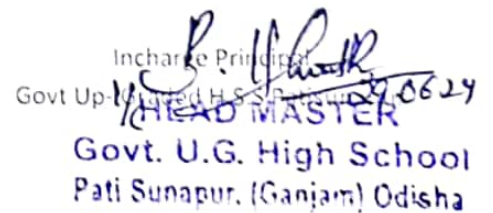 Incharge Principal
Govt Up-Graded H.S.S
29.06.24
I/C HEAD MASTER
Govt. U.G. High School
Pati Sunapur, (Ganjam) Odisha